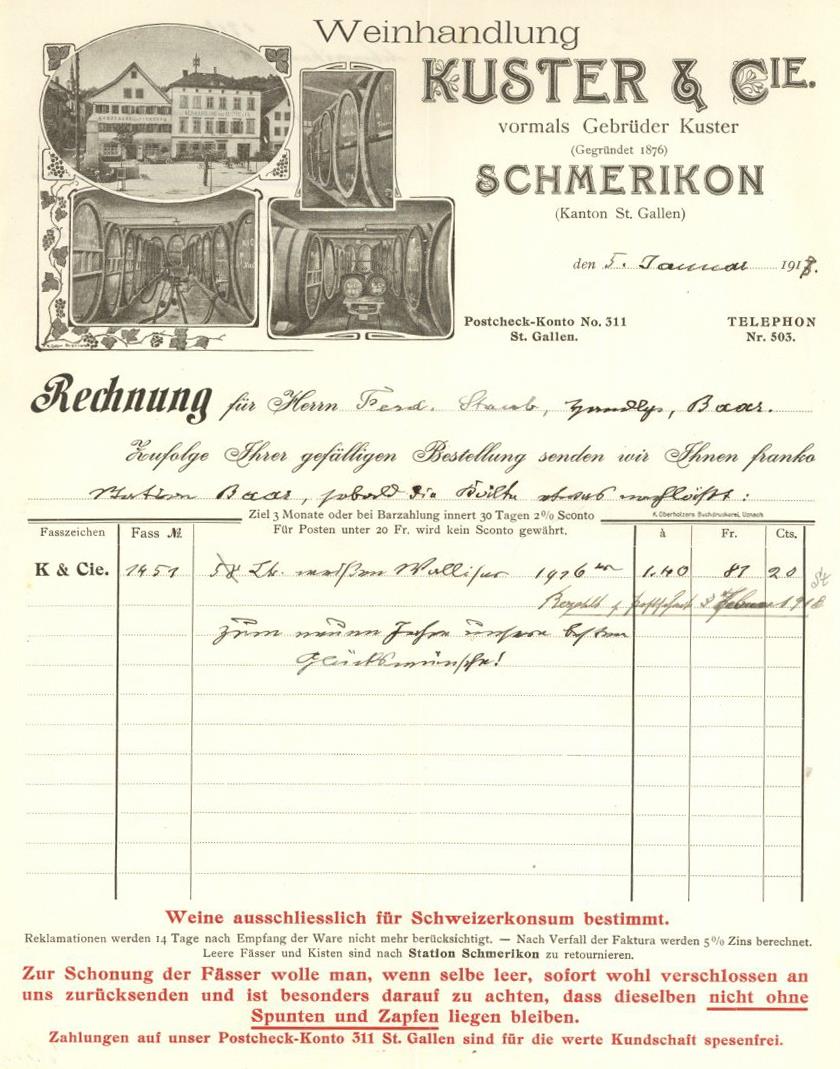 Weinhandlung
KUSTER & CIE.
vormals Gebrüder Kuster
(Gegründet 1876)
SCHMERIKON
(Kanton St. Gallen)
den 5. Januar 1918.
Postcheck-Konto No. 311
St. Gallen.
TELEPHON
Nr. 503.
Rechnung für Herrn Ferd. Staub, Handlg, Baar.
Zufolge Ihrer gefälligen Bestellung senden wir Ihnen franko
Station Baar, sobald die Kälte etwas nachläßt:
Ziel 3 Monate oder bei Barzahlung innert 30 Tagen 2% Sconto
Für Posten unter 20 Fr. wird kein Sconto gewährt.
K. Oberholzers Buchdruckerei, Uznach
Fasszeichen Fass № à Fr. Cts.
K & Cie. 1451 58 Lt. weißen Walliser 1916er 1.40 81 20
Bezahlt p. Postscheck Februar 1918
Zum neuen Jahre unsere besten
Glückswünsche!
Weine ausschliesslich für Schweizerkonsum bestimmt.
Reklamationen werden 14 Tage nach Empfang der Ware nicht mehr berücksichtigt. — Nach Verfall der Faktura werden 5% Zins berechnet.
Leere Fässer und Kisten sind nach Station Schmerikon zu retournieren.
Zur Schonung der Fässer wolle man, wenn selbe leer, sofort wohl verschlossen an
uns zurücksenden und ist besonders darauf zu achten, dass dieselben nicht ohne
Spunten und Zapfen liegen bleiben.
Zahlungen auf unser Postcheck-Konto 311 St. Gallen sind für die werte Kundschaft spesenfrei.